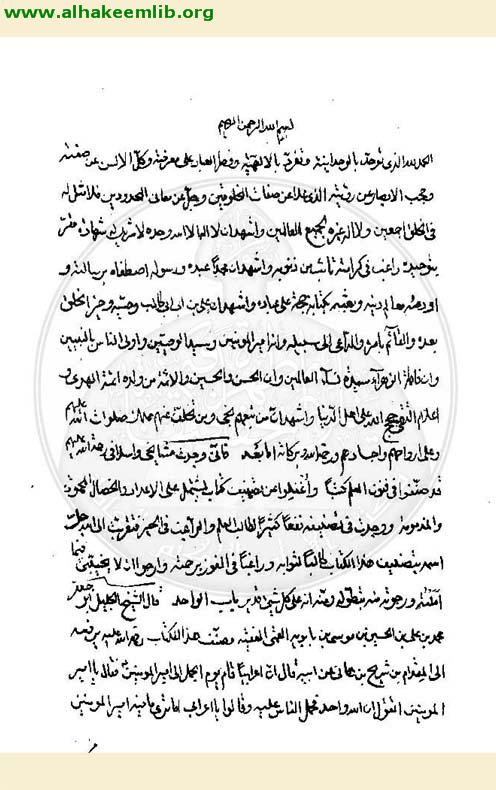 www.alhakeemlib.org
بسم الله الرحمن الرحيم
الحمد لله الذى توحد بالوحدانية وتفرد بالالهية وفطر العباد على معرفته وكلّ الالسن عن صفته
وحجب الابصار عن رؤيته الذى علا عن صفات المخلوقين وجلّ عن معانى المحدودين فلا مثل له
فى الخلق اجمعين ولا اله غيره لجميع العالمين واشهد ان لا اله الا الله وحده لا شريك له شهادة مقر
بتوحيده راغب فى كرامته تائب من ذنوبه واشهد ان محمدا عبده ورسوله اصطفاه برسالته و
معالم دينه وبعثه بكتابه حجة على عباده واشهد ان على بن ابى طالب وصيه وخير الخلق
بعده والقائم بامره والداعى الى سبيله وانه امير المؤمنين وسيد الوصيين واولى الناس بالنبيين
وان فاطمة الزهراء سيدة نساء العالمين وان الحسن والحسين والائمة من ولده ائمة الهدى و
اعلام التقى حجج الله على اهل الدنيا واشهد ان من تبعهم نجى ومن تخلف عنهم هلك صلوات الله عليهم
وعلى ارواحهم واجسادهم ورحمة الله وبركاته اما بعد فانى وجدت مشايخى واسلافى رحمة الله عليهم
قد صنّفوا فى فنون العلم كتبا واغفلوا عن تصنيف كتاب يشتمل على الاعداد والخصال المحمودة
والمذمومة ووجدت فى تصنيفه نفعا كثيرا لطالب العلم والراغب فى الخير فتقربت الى الله جلّ
اسمه بتصنيف هذا الكتاب طالبا لثوابه وراغبا فى الفوز برحمته وارجو ان لا يخيبنى فيما
املته ورجوته منه بتطوله ومنه انه على كل شئ قدير باب الواحد قال الشيخ الجليل ابو جعفر
محمد بن على بن الحسين بن موسى بن بابويه القمى الفقيه مصنف هذا الكتاب رحمة الله عليه يرفعه
الى المقدام بن شريح بن هانى عن ابيه قال ان اعرابيا قام يوم الجمل الى امير المؤمنين فقال يا امير
المؤمنين اتقول ان الله واحد فحمل الناس عليه وقالوا يا اعرابى اما ترى ما فيه امير المؤمنين